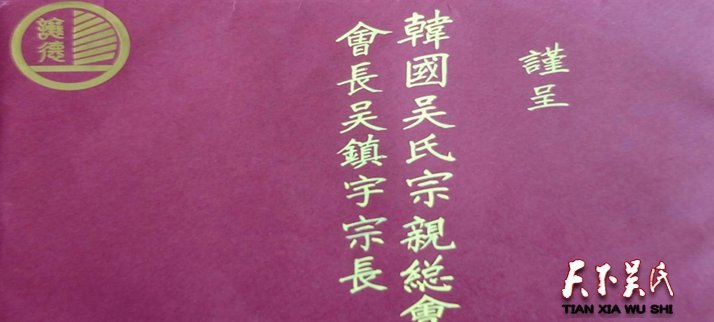 謹呈
韓國吴氏宗親総會
會長吴鎮宇宗長
讓德
天下吴氏
TIAN XIA WU SHI